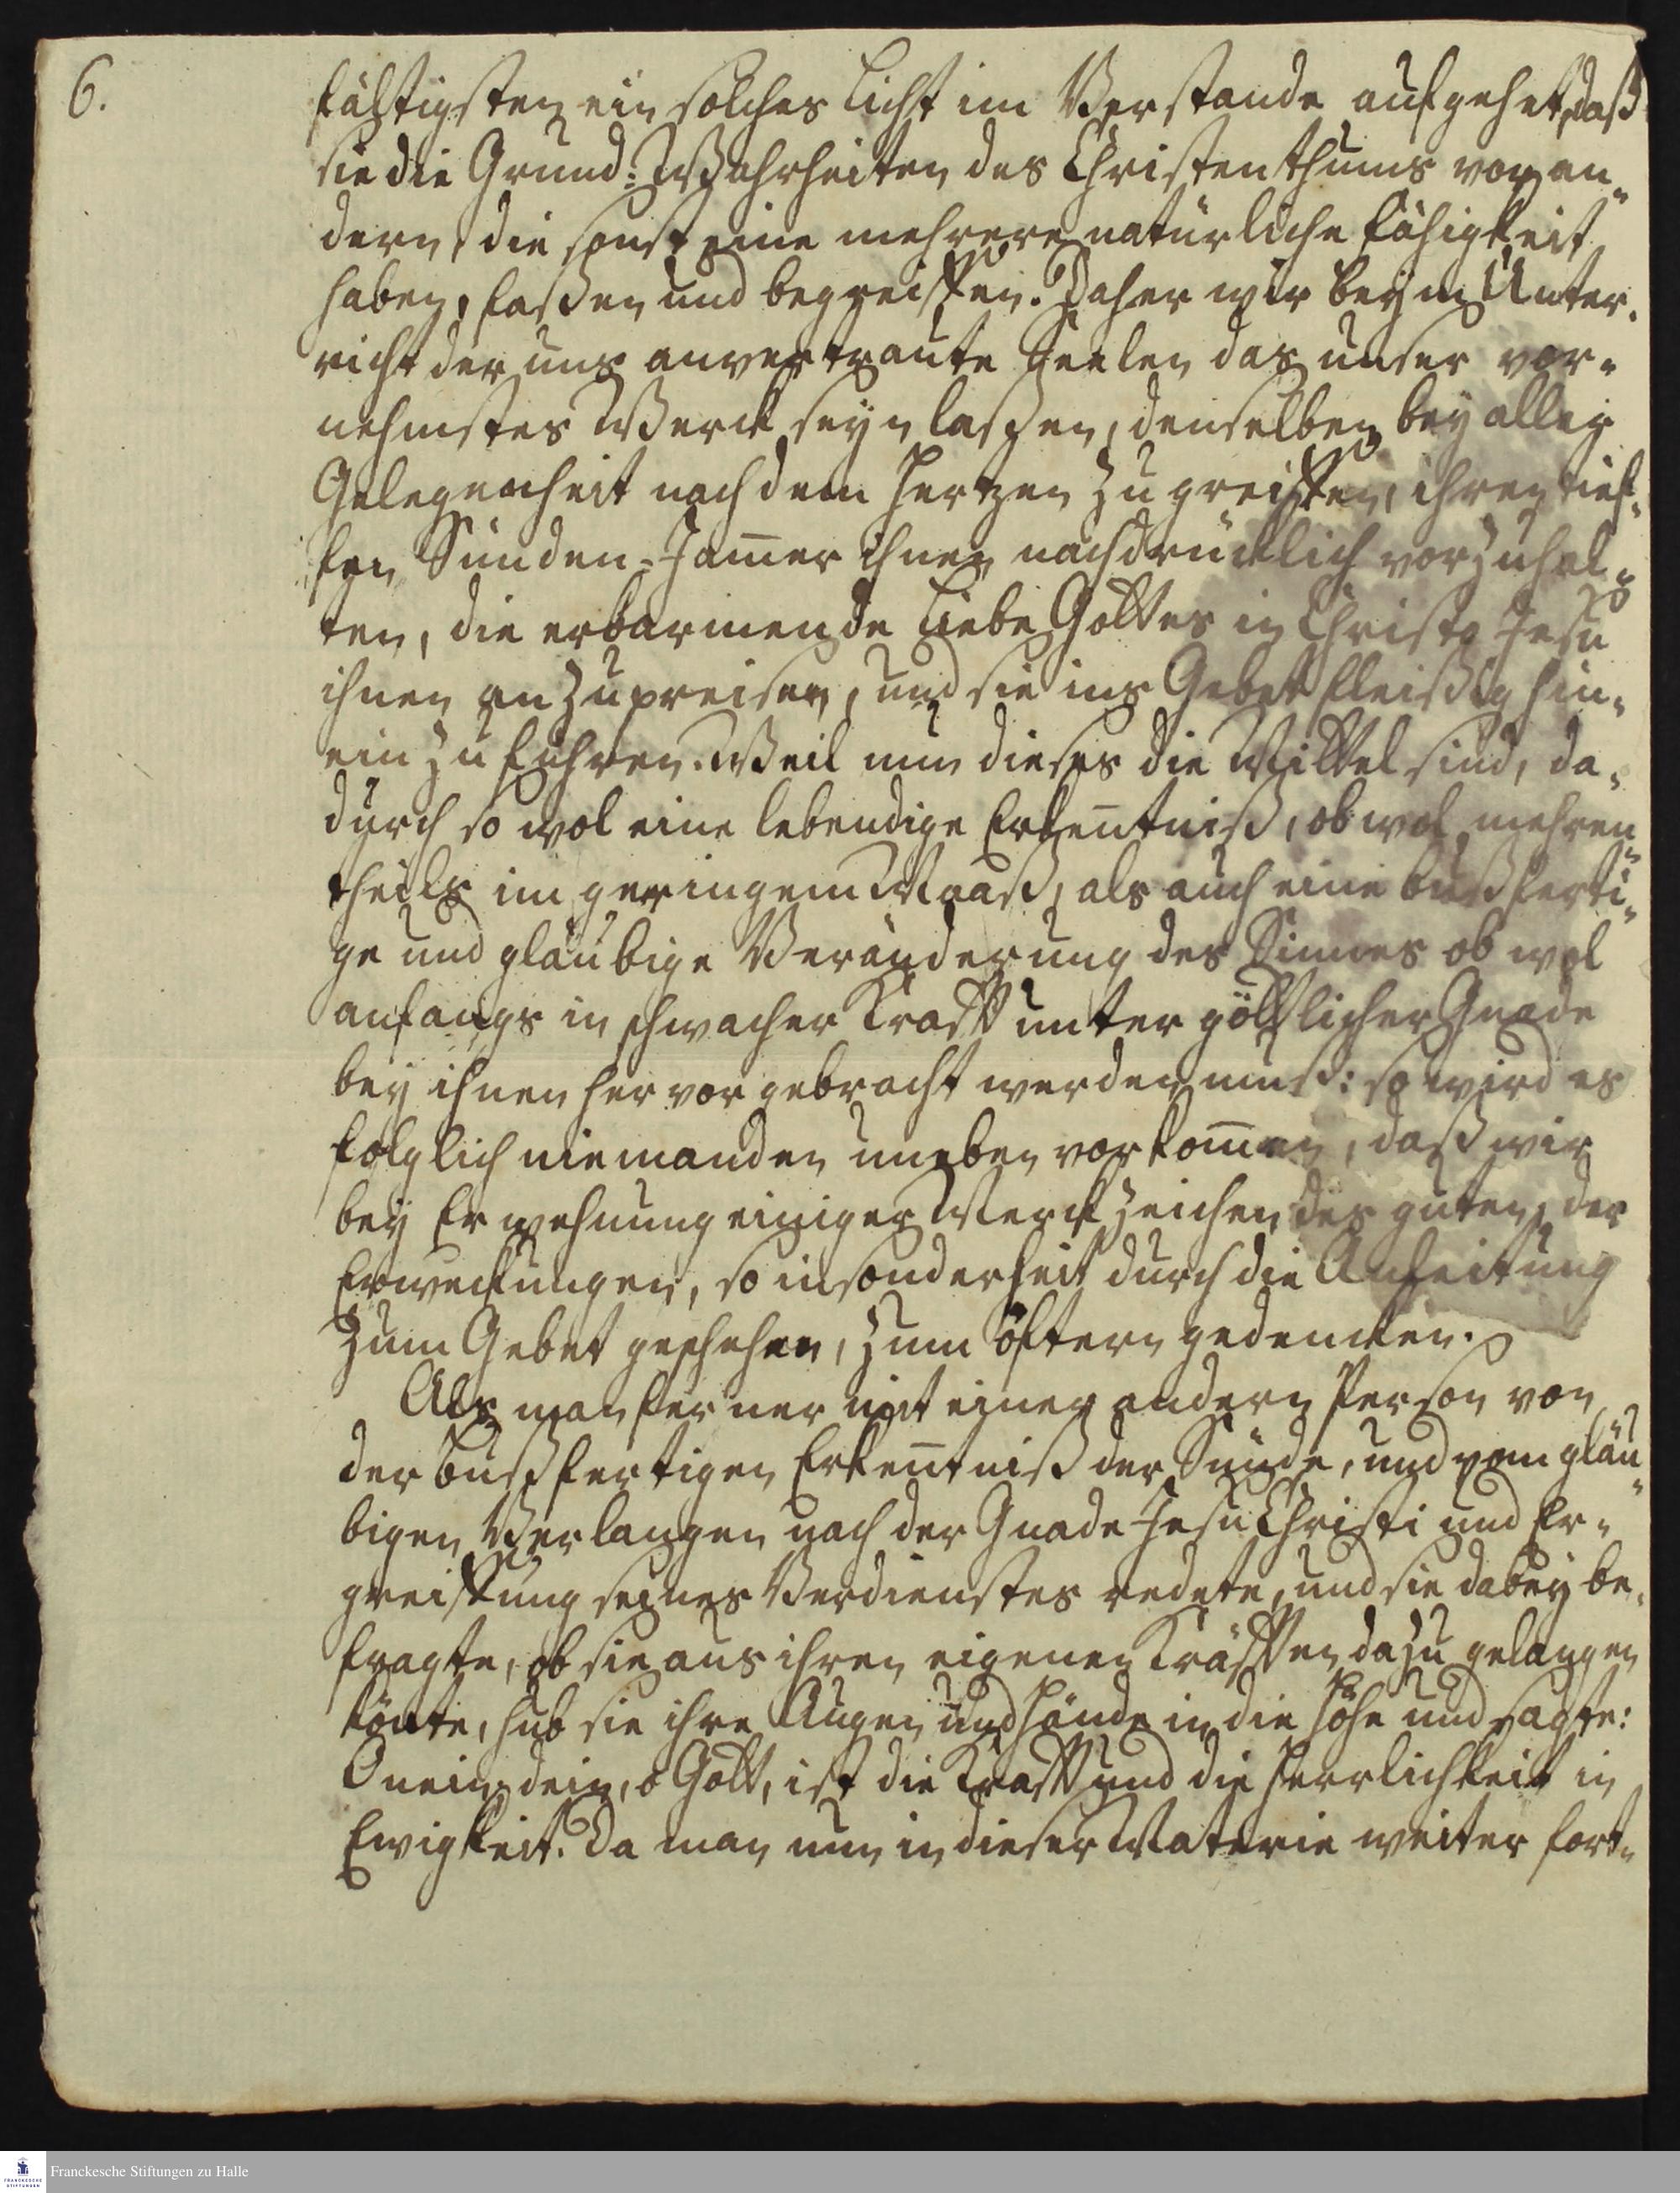 6.
fältigsten ein solches Licht im Verstande aufgehet, daß
sie die Grund-Wahrheiten des Christenthums vor an-
dern, die sonst eine mehrere natürliche Fähigkeit
haben, faßen und begreiffen. Daher wir beym Unter-
richt der uns anvertraute Seelen das unser vor-
nehmstes Werck seyn laßen, denselben bey aller
Gelegenheit nach dem Hertzen zu greiffen, ihren tief-
fen Sünden-Jam̄er ihnen nachdrücklich vorzuhal-
ten, die erbarmende Liebe Gottes in Christo Jesu
ihnen anzupreisen, und sie ins Gebet fleißig hin-
ein zu führen. Weil nun dieses die Mittel sind, da-
durch so wol eine lebendige Erken̄tniß, ob wol mehren-
theils im geringem Maaß, als auch eine bußferti-
ge und gläubige Veränderung des Sinnes ob wol
anfangs in schwacher Krafft unter göttlicher Gnade
bey ihnen hervor gebracht werden muß: so wird es
folglich niemanden uneben vorkom̄en, daß wir
bey Erwehnung einiger Merckzeichen des guten, der
Erweckungen, so insonderheit durch die Anleitung
zum Gebet geschehen, zum öftern gedencken.
Als man ferner mit einer andern Person von
der bußfertigen Erken̄tniß der Sünde, und vom gläu-
bigen Verlangen nach der Gnade Jesu Christi und Er-
greiffung seines Verdienstes redete, und sie dabey be-
fragte, ob sie aus ihren eigenen Kräfften dazu gelangen
könte, hub sie ihre Augen und Hände in die Höhe und sagte:
O nein, dein, o Gott, ist die Krafft und die Herrlichkeit in
Ewigkeit. Da man nun in dieser Materie weiter fort-
Franckesche Stiftungen zu Halle
FRANCKESCHE
STIFTUNGEN